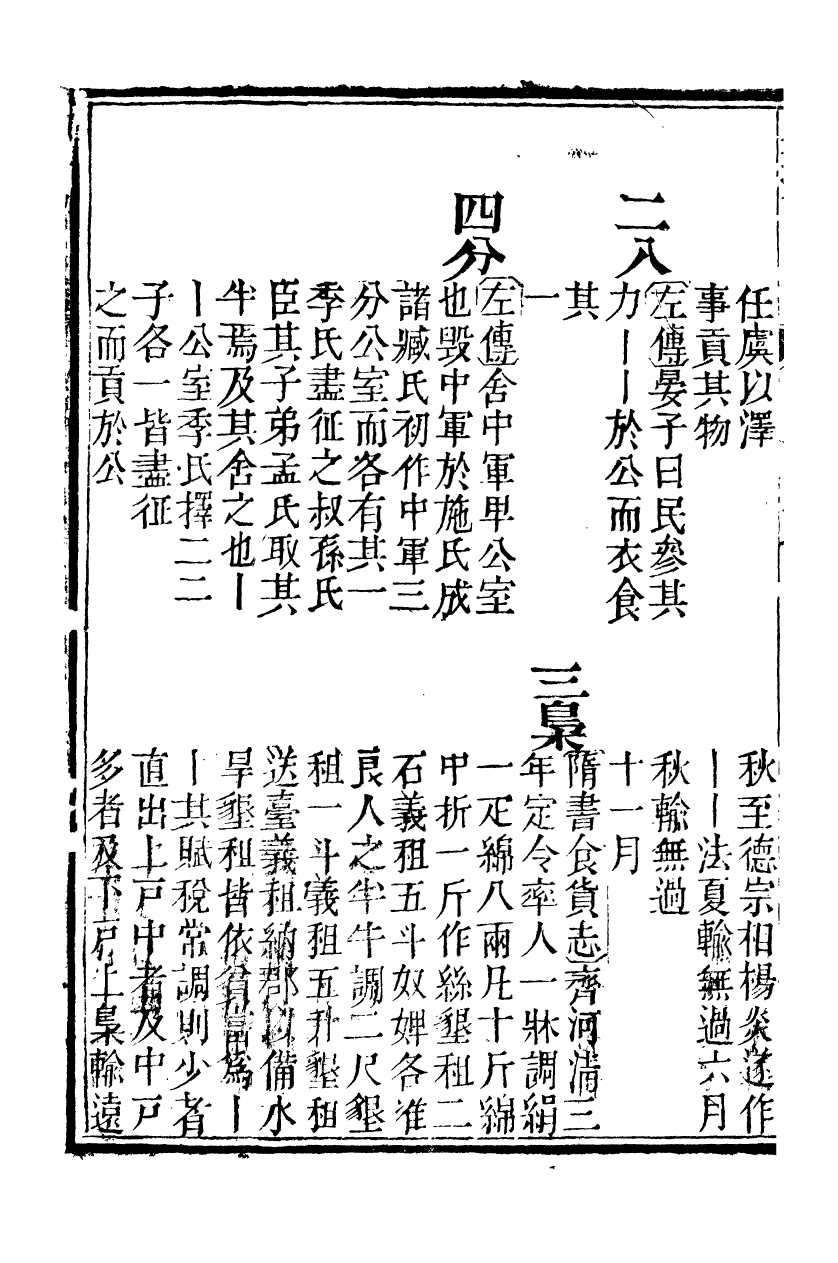 任虞以澤
事貢其物
二入
左傳晏子曰民參其
力丨丨於公而衣食
其
一
四分
左傳舍中軍卑公室
也毀中軍於施氏成
諸臧氏初作中軍三
分公室而各有其一
季氏盡征之叔孫氏
臣其子弟孟氏取其
半焉及其舍之也丨
丨公室季氏擇二二
子各一皆盡征
之而貢於公
秋至德宗相楊炎遂作
丨丨法夏輸無過六月
秋輸無過
十一月
三梟
隋書食貨志齊河清三
年定令率人一牀調絹
一疋綿八兩凡十斤綿
中折一斤作絲墾租二
石義租五斗奴婢各准
良人之半牛調二尺墾
租一斗義租五升墾租
送臺義租納郡以備水
旱墾租皆依貧富爲丨
丨其賦稅常調則少者
直出上戸中者及中戸
多者及下戸上梟輸遠